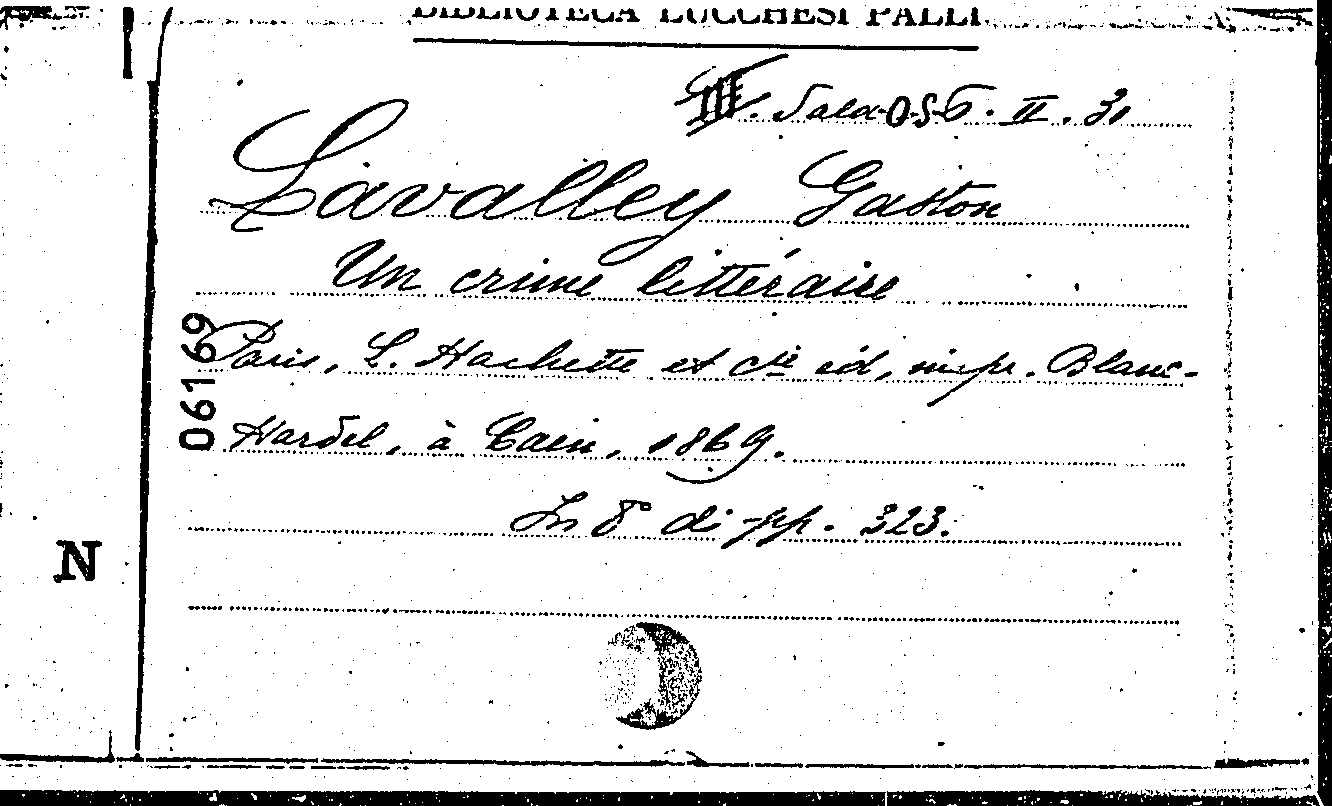 BIBLIOTECA LUCCHESI PALLI
III. Sala OS 6. II. 31
Lavalley Gaston
Un crime littéraire
Paris, L. Hachette et Cie éd, impr. Blanc-
Hardel, à Caen, 1869.
In 8º di pp. 323.
06169
N